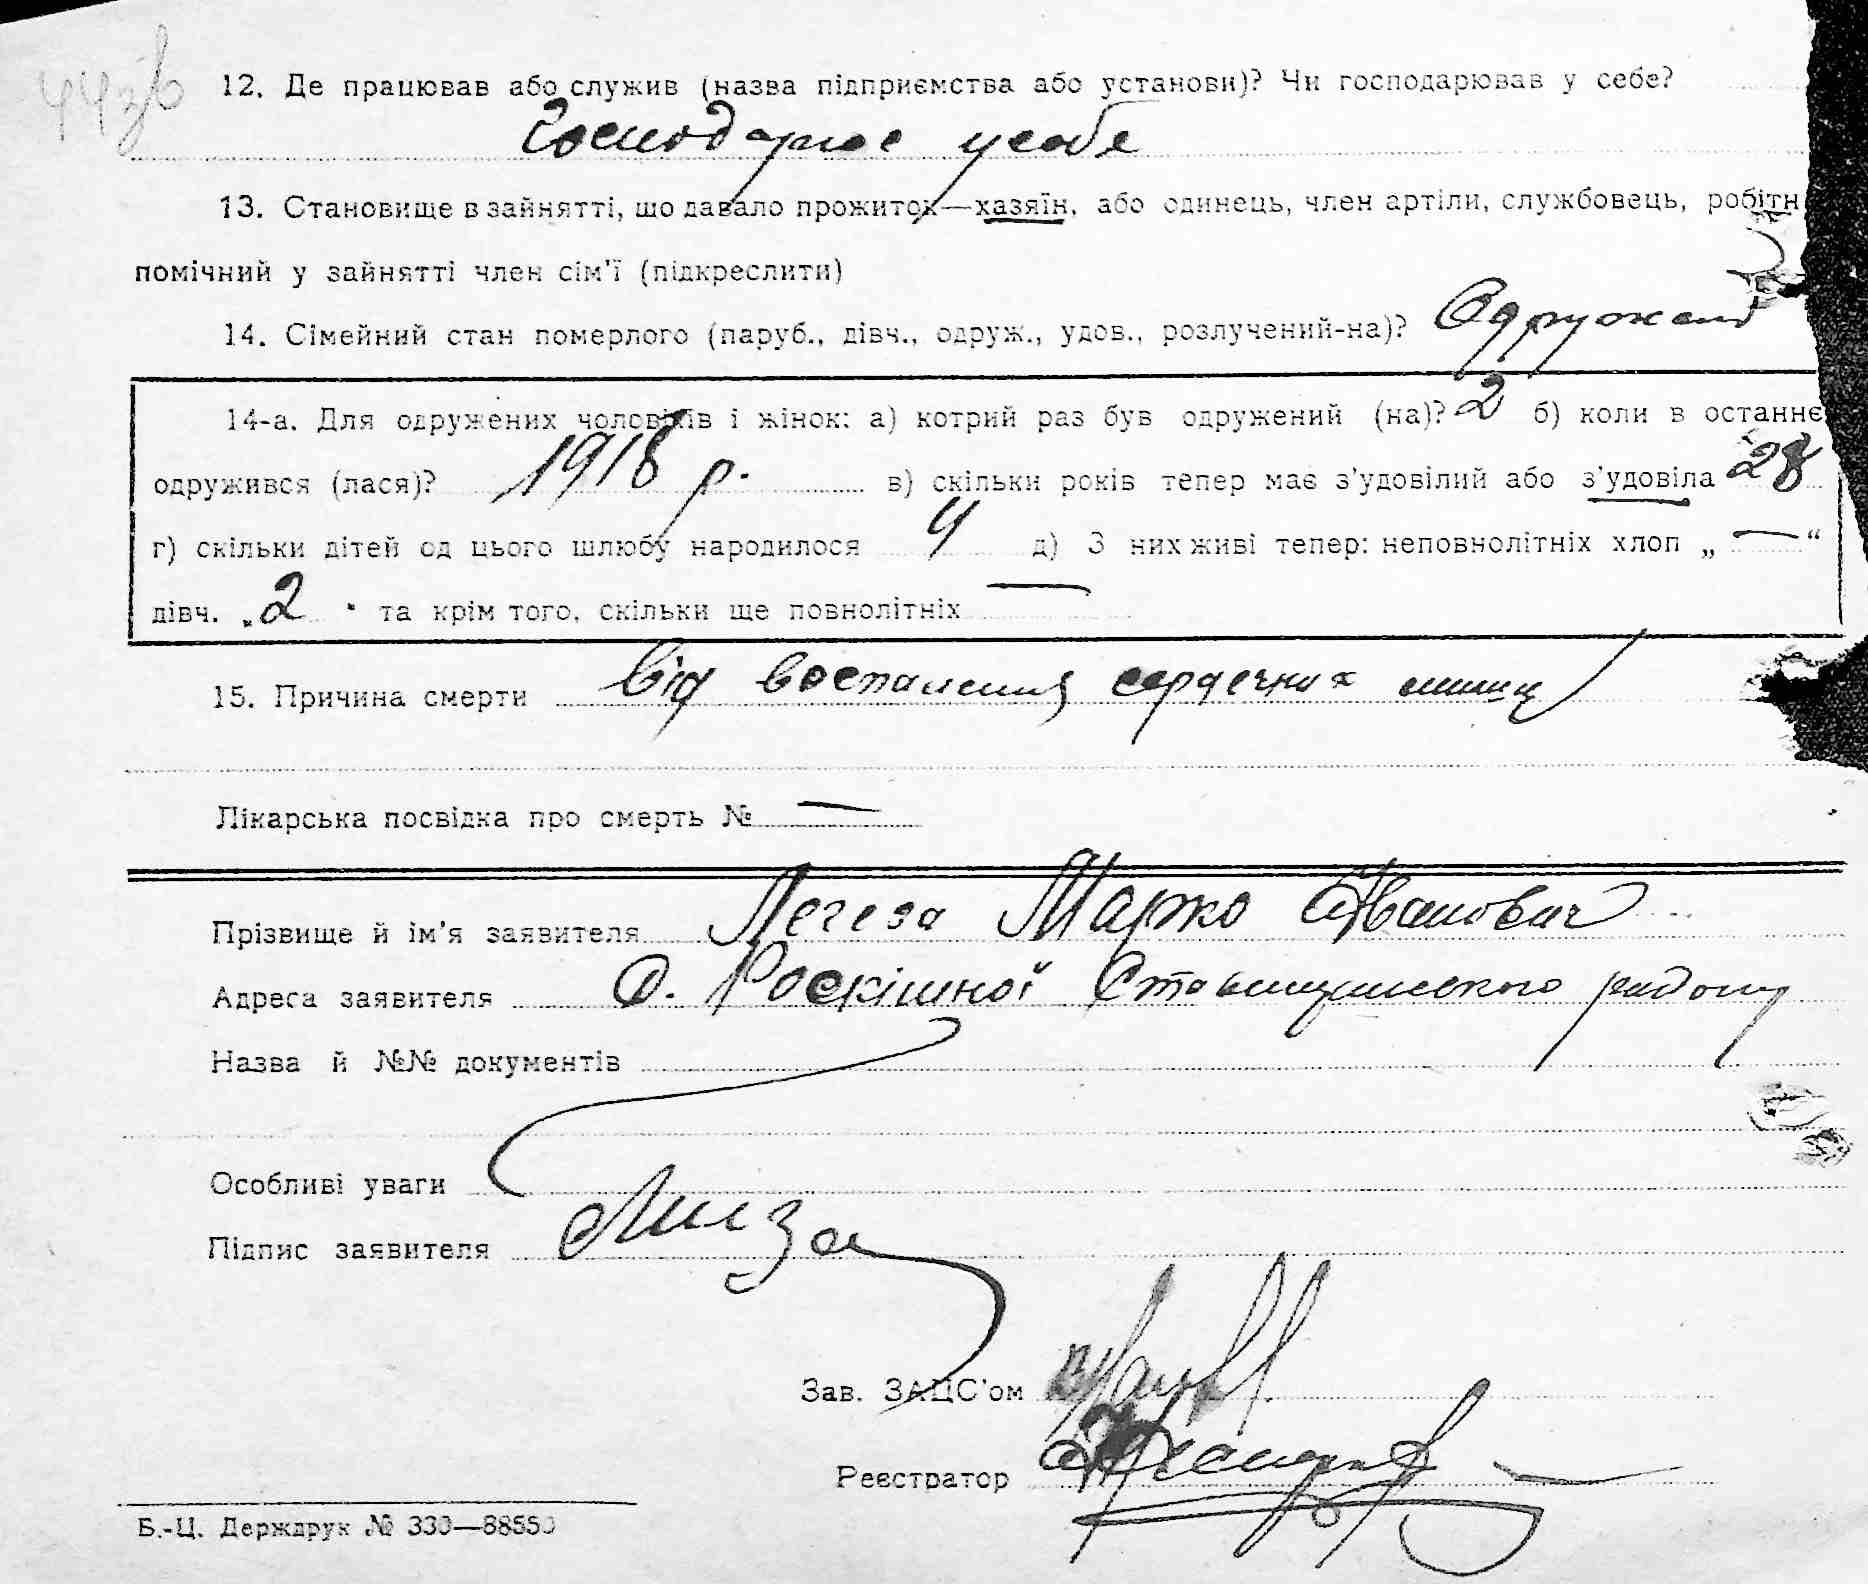 44зв
12. Де працював або служив (назва підприємства або установи)? Чи господарював у себе?
Господарює у себе
13. Становище в зайнятті, що давало прожиток—хазяїн, або одинець, член артіли, службовець, робітн
помічний у зайнятті член сім'ї (підкреслити)
14. Сімейний стан померлого (паруб., дівч., одруж., удов., розлучений-на)? Одружений
14-а. Для одружених чоловіків і жінок: а) котрий раз був одружений (на)? 2 б) коли в останнє
одружився (лася)? 1918 р. в) скільки років тепер має з'удовілий або з'удовіла 28
г) скільки дітей од цього шлюбу народилося 4 д) З них живі тепер: неповнолітніх хлоп „ — “
дівч. „ 2 " та крім того, скільки ще повнолітніх —
15. Причина смерти від воспаления сердечних мишц
Лікарська посвідка про смерть № —
Прізвище й ім'я заявителя Легеза Марко Іванович
Адреса заявителя С. Роскішної Ставищанського району
Назва й №№ документів
Особливі уваги
Підпис заявителя
Зав. ЗАЦС'ом
Реєстратор
Б.-Ц. Держдрук № 330—88550